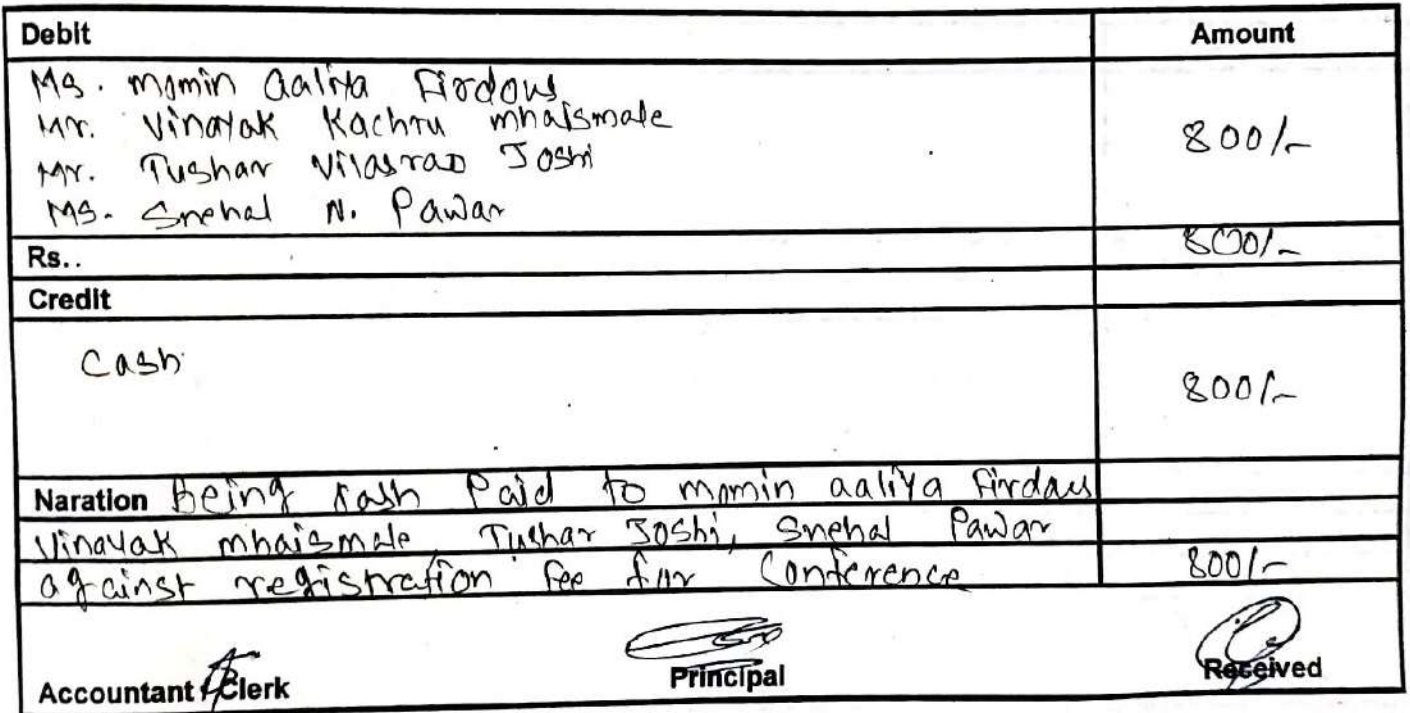 Debit Amount
Ms. Momin Aaliya Firdous
Mr. Vinayak Kachru Mhaismale
Mr. Tushar Vilasrao Joshi
Ms. Snehal N. Pawar
800/-
Rs.. 800/-
Credit
Cash
800/-
Naration Being Cash Paid to momin aaliya firdaus
Vinayak mhaismale, Tushar Joshi, Snehal Pawar
against registration fee for Conference 800/-
Accountant / Clerk Principal Received